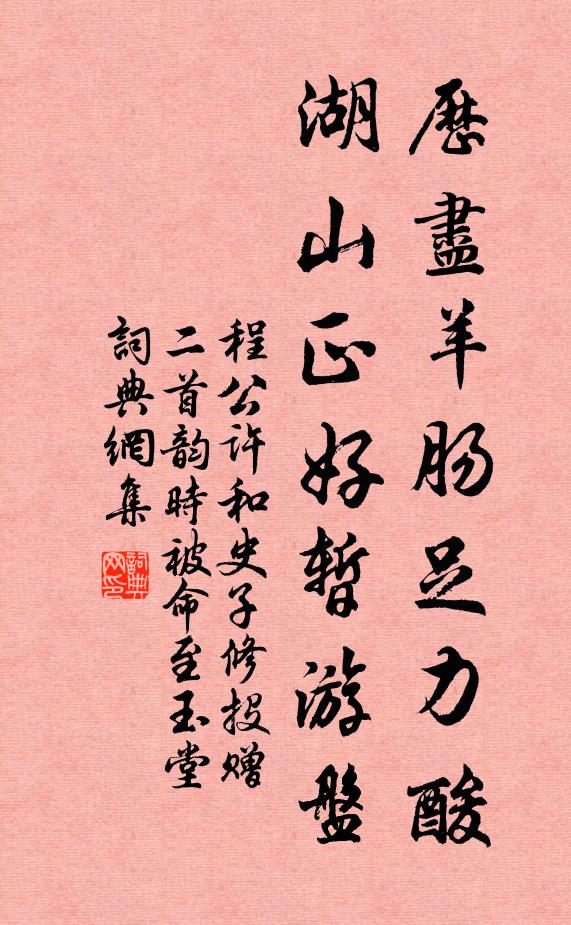 歷盡羊腸足力酸
湖山正好暫游盤
程公许和史子修投赠
二首韵時被命至玉堂
詞典網集
詞典网印